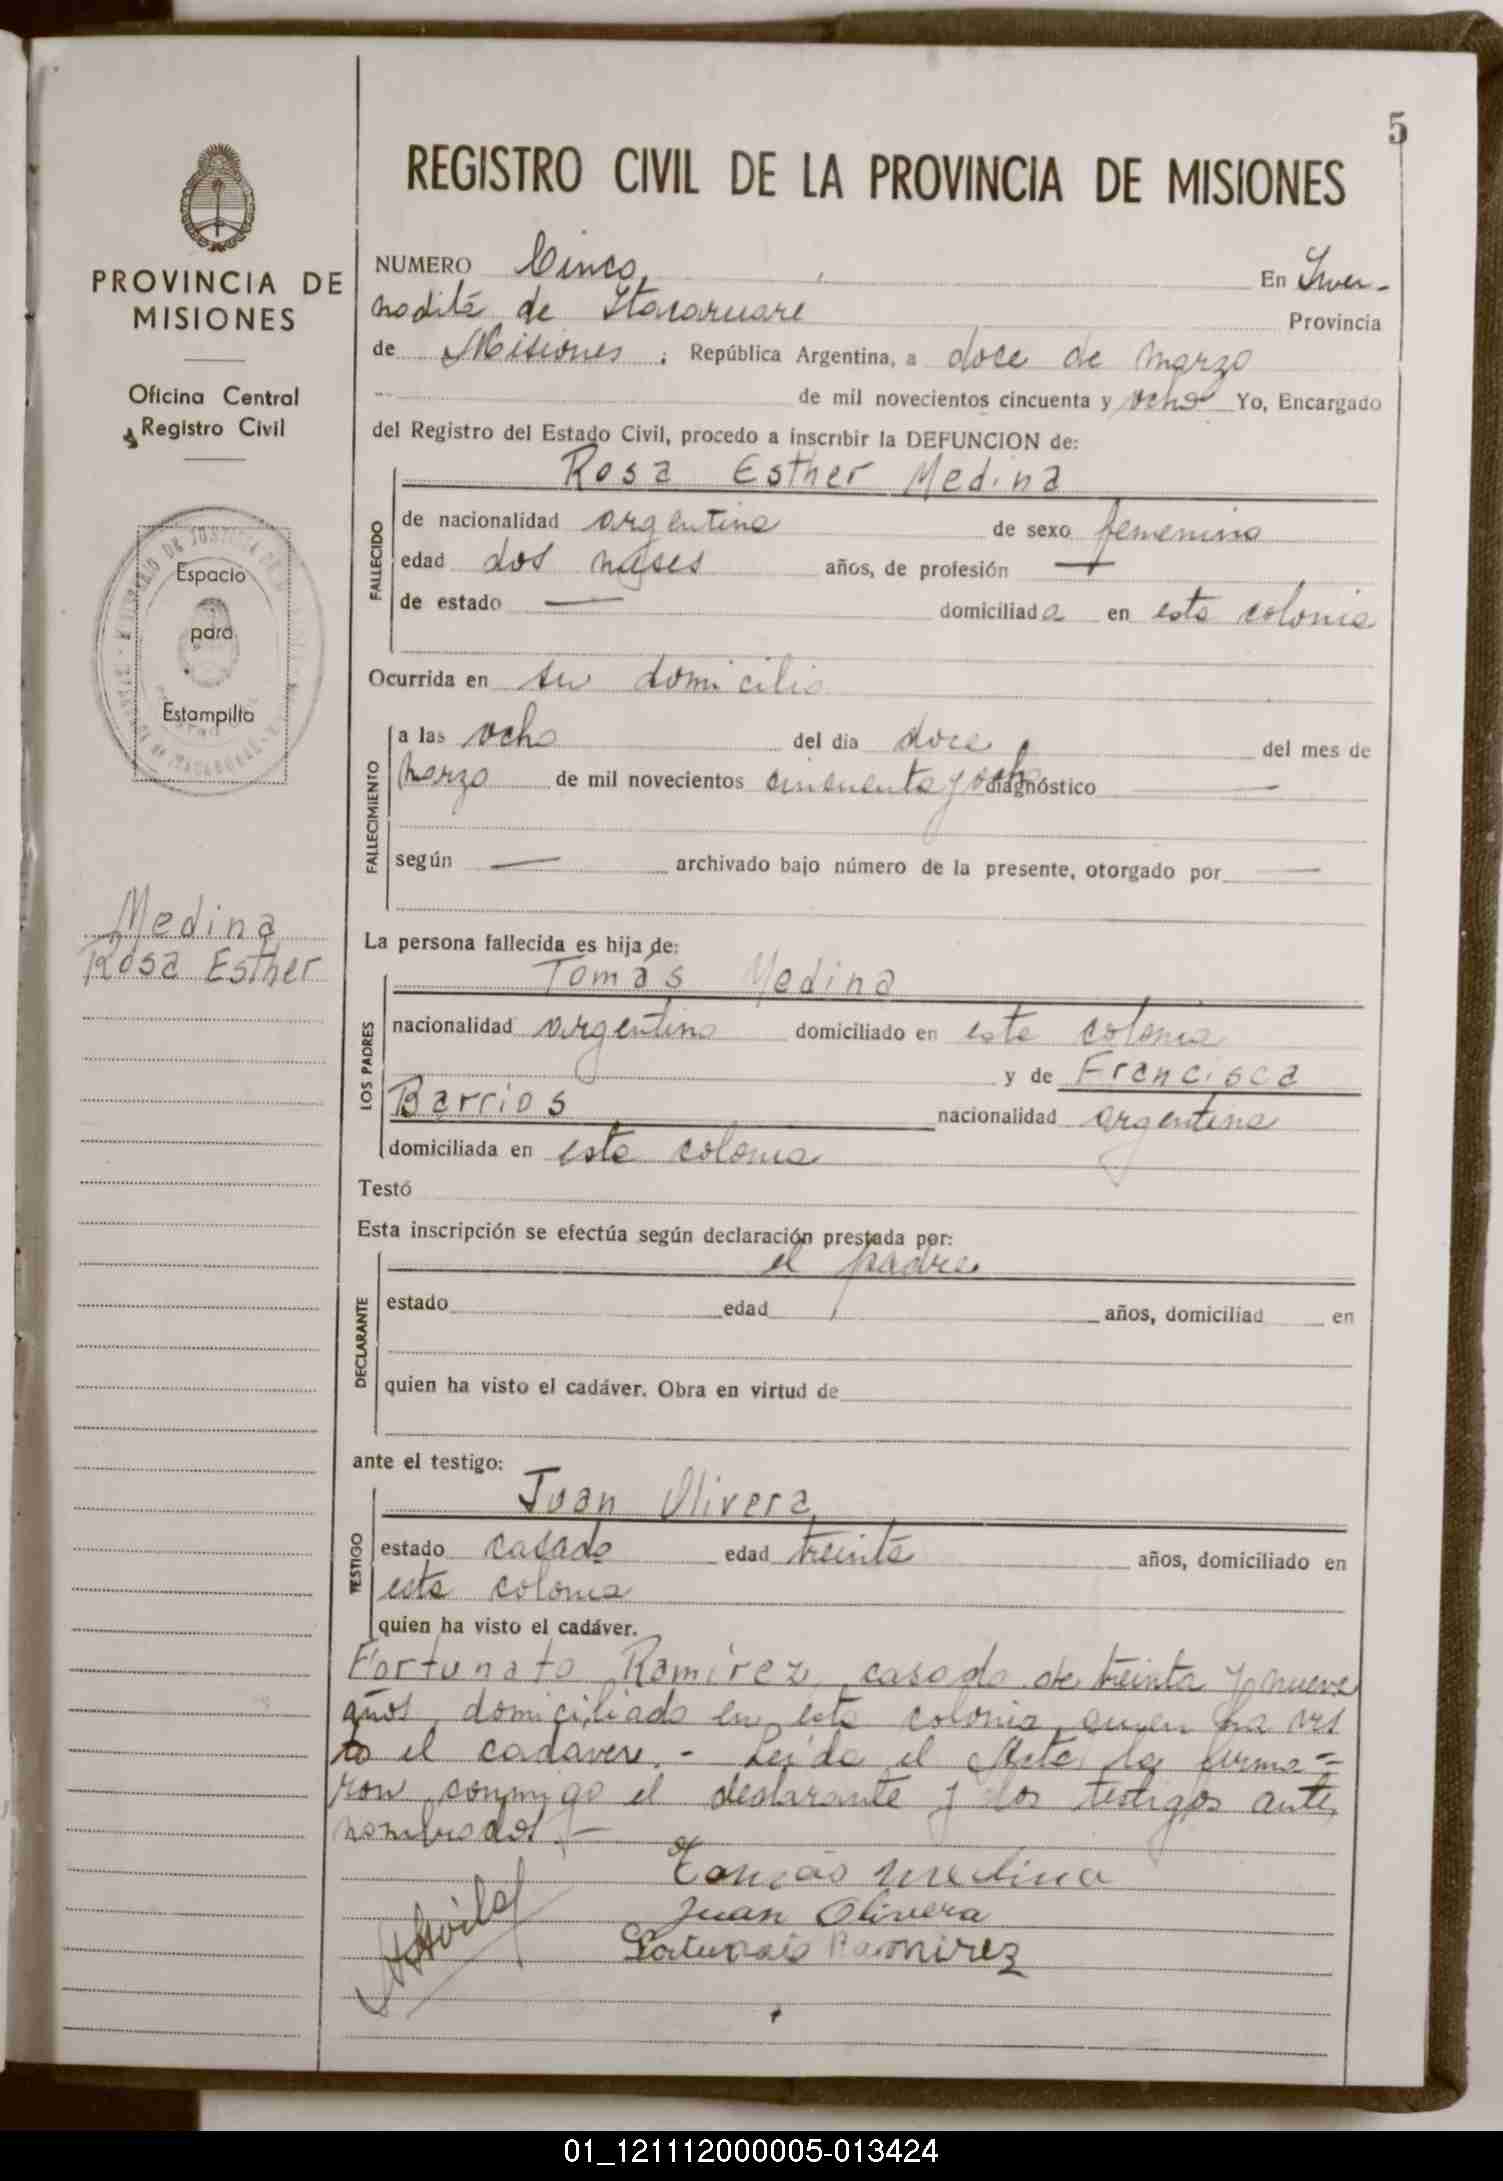 5
REGISTRO CIVIL DE LA PROVINCIA DE MISIONES
PROVINCIA DE
MISIONES
Oficina Central
Registro Civil
Espacio
para
Estampilla
Medina
Rosa Esther
NUMERO Cinco, En Inver-
nadité de Itacaruare Provincia
de Misiones ; República Argentina, a doce de marzo
de mil novecientos cincuenta y ocho Yo, Encargado
del Registro del Estado Civil, procedo a inscribir la DEFUNCION de:
Rosa Esther Medina
FALLECIDO
de nacionalidad argentina de sexo femenino
edad dos meses años, de profesión —
de estado — domiciliada en esta colonia
Ocurrida en su domicilio
FALLECIMIENTO
a las ocho del día doce del mes de
Marzo de mil novecientos cincuenta y ocho diagnóstico —
según — archivado bajo número de la presente, otorgado por —
La persona fallecida es hija de:
Tomás Medina
LOS PADRES
nacionalidad argentino domiciliado en esta colonia
y de Francisca
Barrios nacionalidad argentina
domiciliada en esta colonia
Testó
Esta inscripción se efectúa según declaración prestada por:
el padre
DECLARANTE
estado edad años, domiciliad en
quien ha visto el cadáver. Obra en virtud de
ante el testigo:
Juan Olivera
TESTIGO
estado casado edad treinta años, domiciliado en
esta colonia
quien ha visto el cadáver.
Fortunato Ramírez, casado de treinta y nueve
años, domiciliado en esta colonia, quien ha vis
to el cadaver. - Leída el Acta la firma=
ron conmigo el declarante y los testigos ante
nombrados. -
Tomás Medina
Juan Olivera
Ramirez
01_121112000005-013424